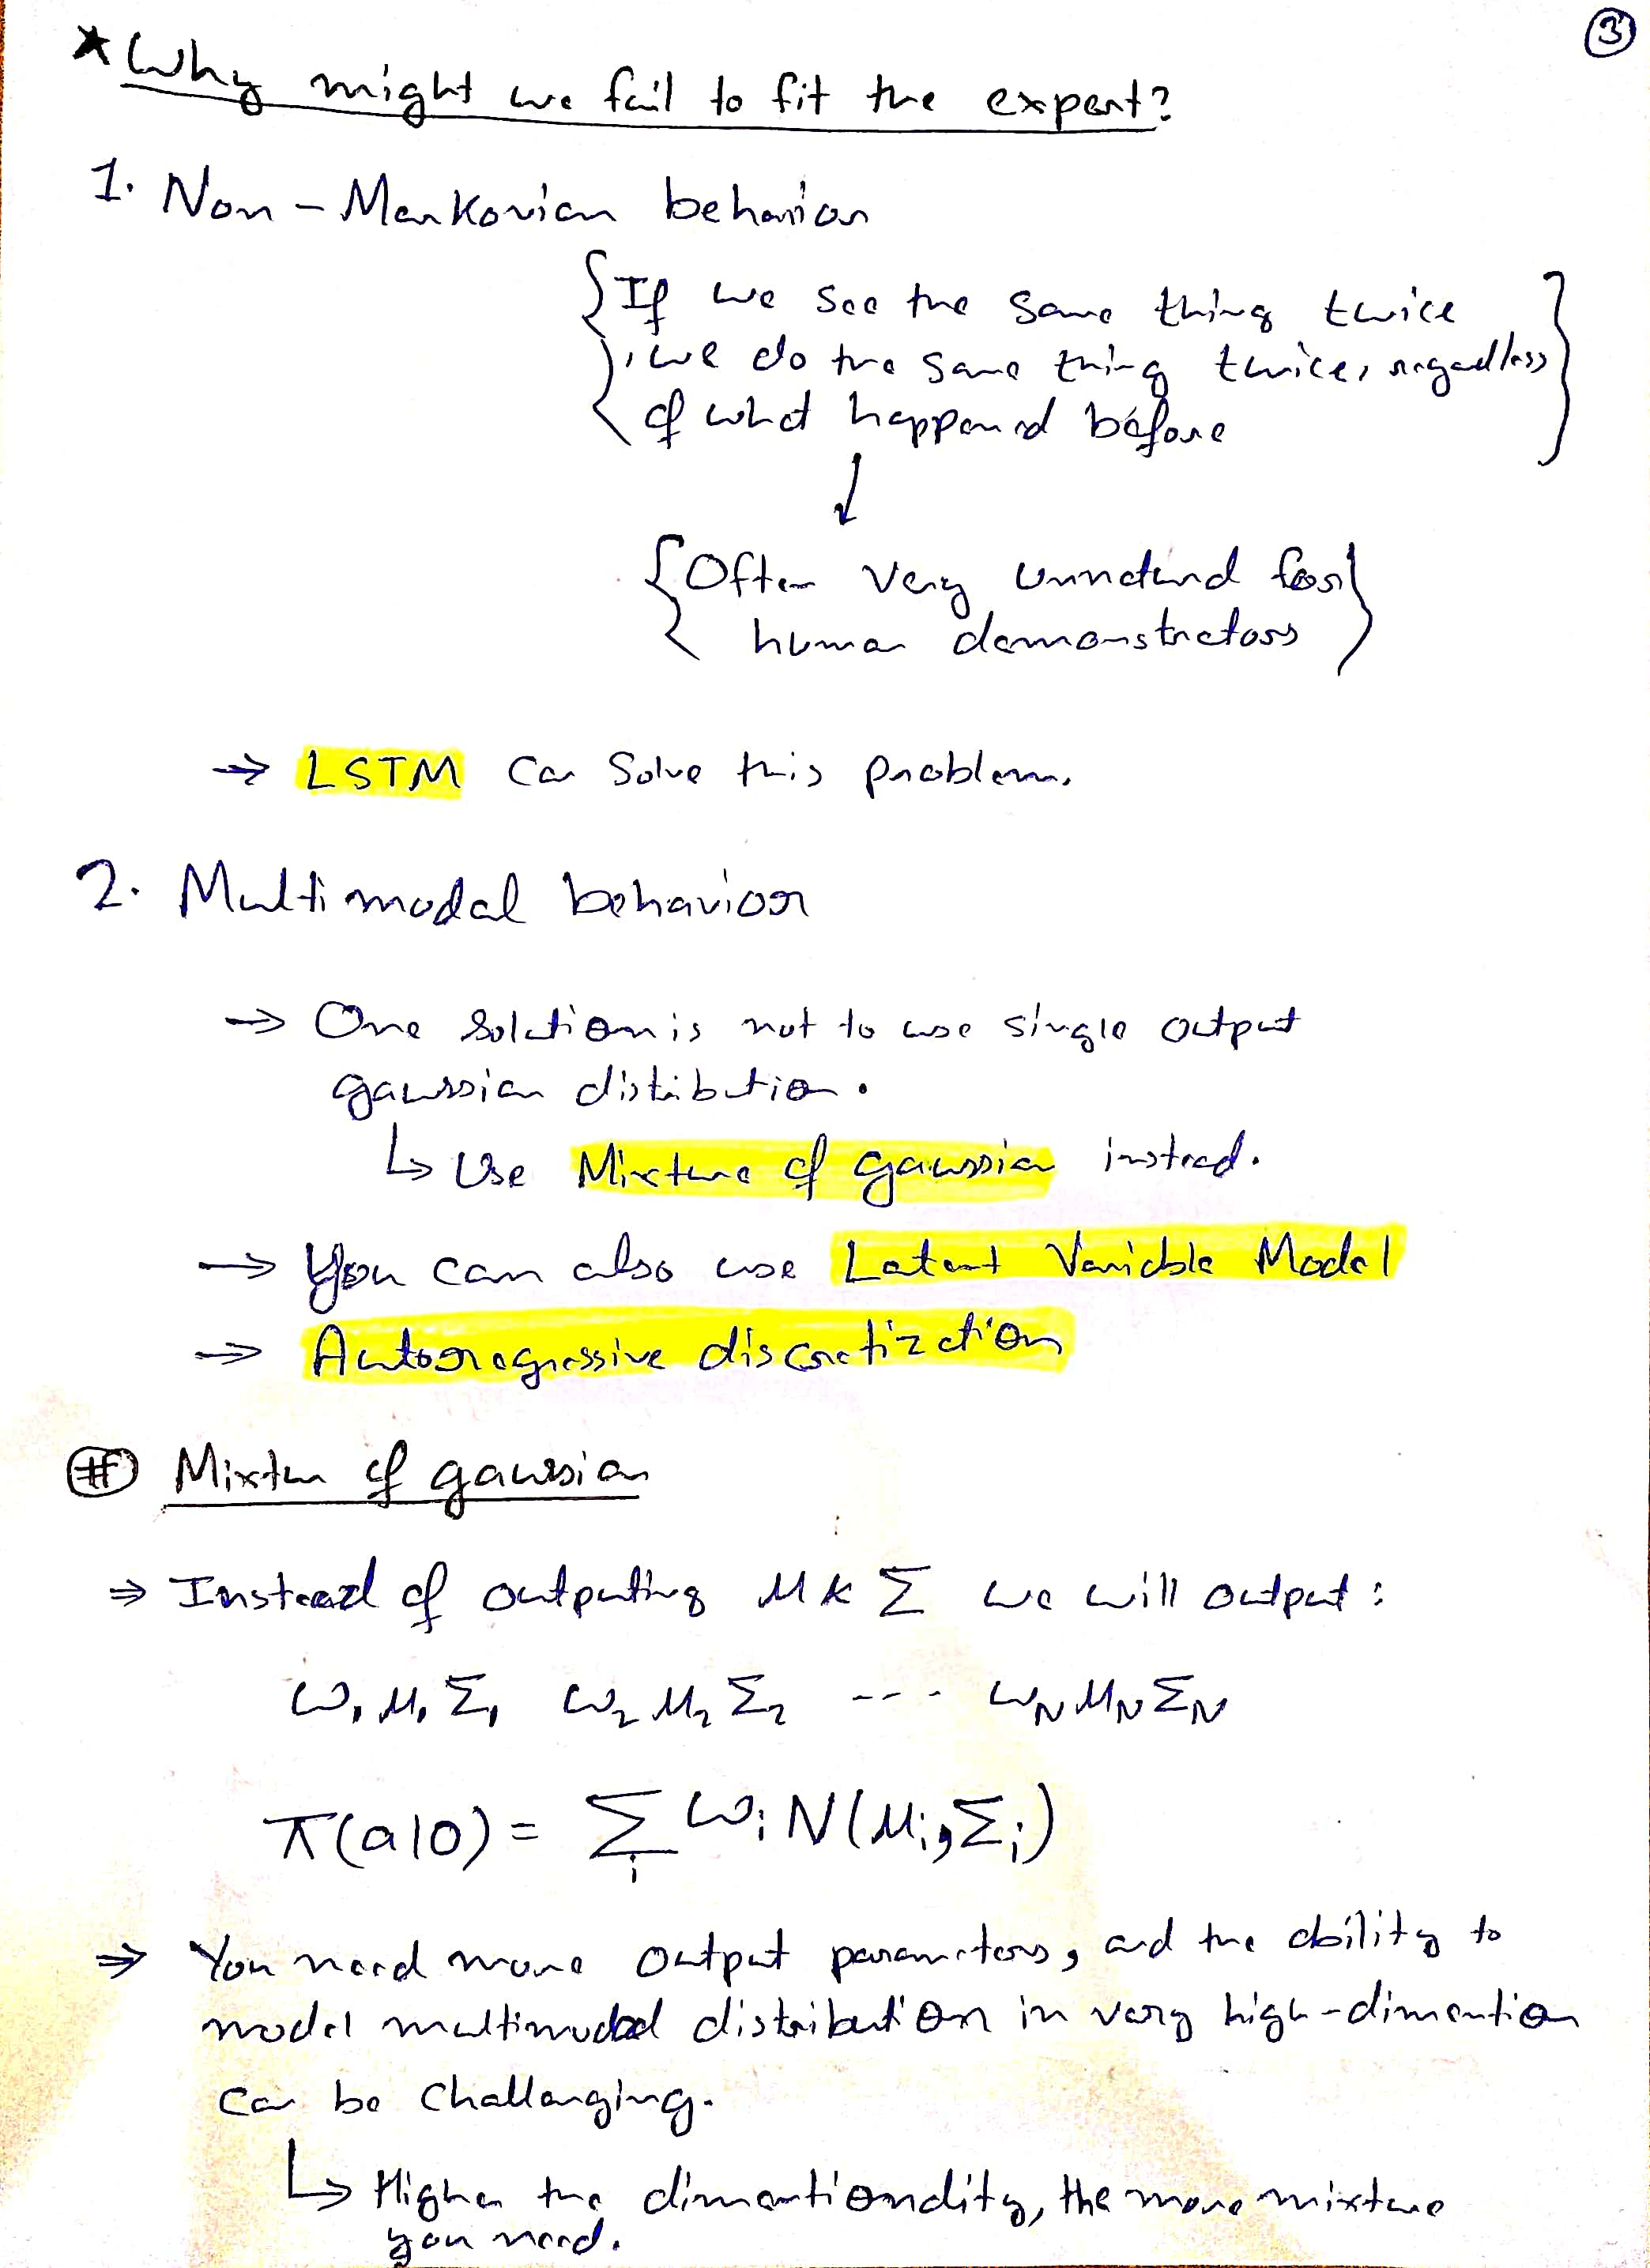 3
* Why might we fail to fit the expert?
1. Non-Markovian behavior
{If we see the same thing twice
, we do the same thing twice, regardless
of what happened before}
↓
{Often very unnatural for
human demonstrators}
→ LSTM can solve this problem.
2. Multimodal behavior
→ One solution is not to use single output
gaussian distribution.
↳ Use Mixture of gaussian instead.
→ You can also use Latent Variable Model
→ Autoregressive discretization
# Mixture of gaussian
⇒ Instead of outputing μ & Σ we will output:
ω₁ μ₁ Σ₁ ω₂ μ₂ Σ₂ --- ω_N μ_N Σ_N
π(a|o) = Σ_i ω_i N(μ_i, Σ_i)
⇒ You need more output parameters, and the ability to
model multimodal distribution in very high-dimention
can be challenging.
↳ Higher the dimentionality, the more mixture
you need.